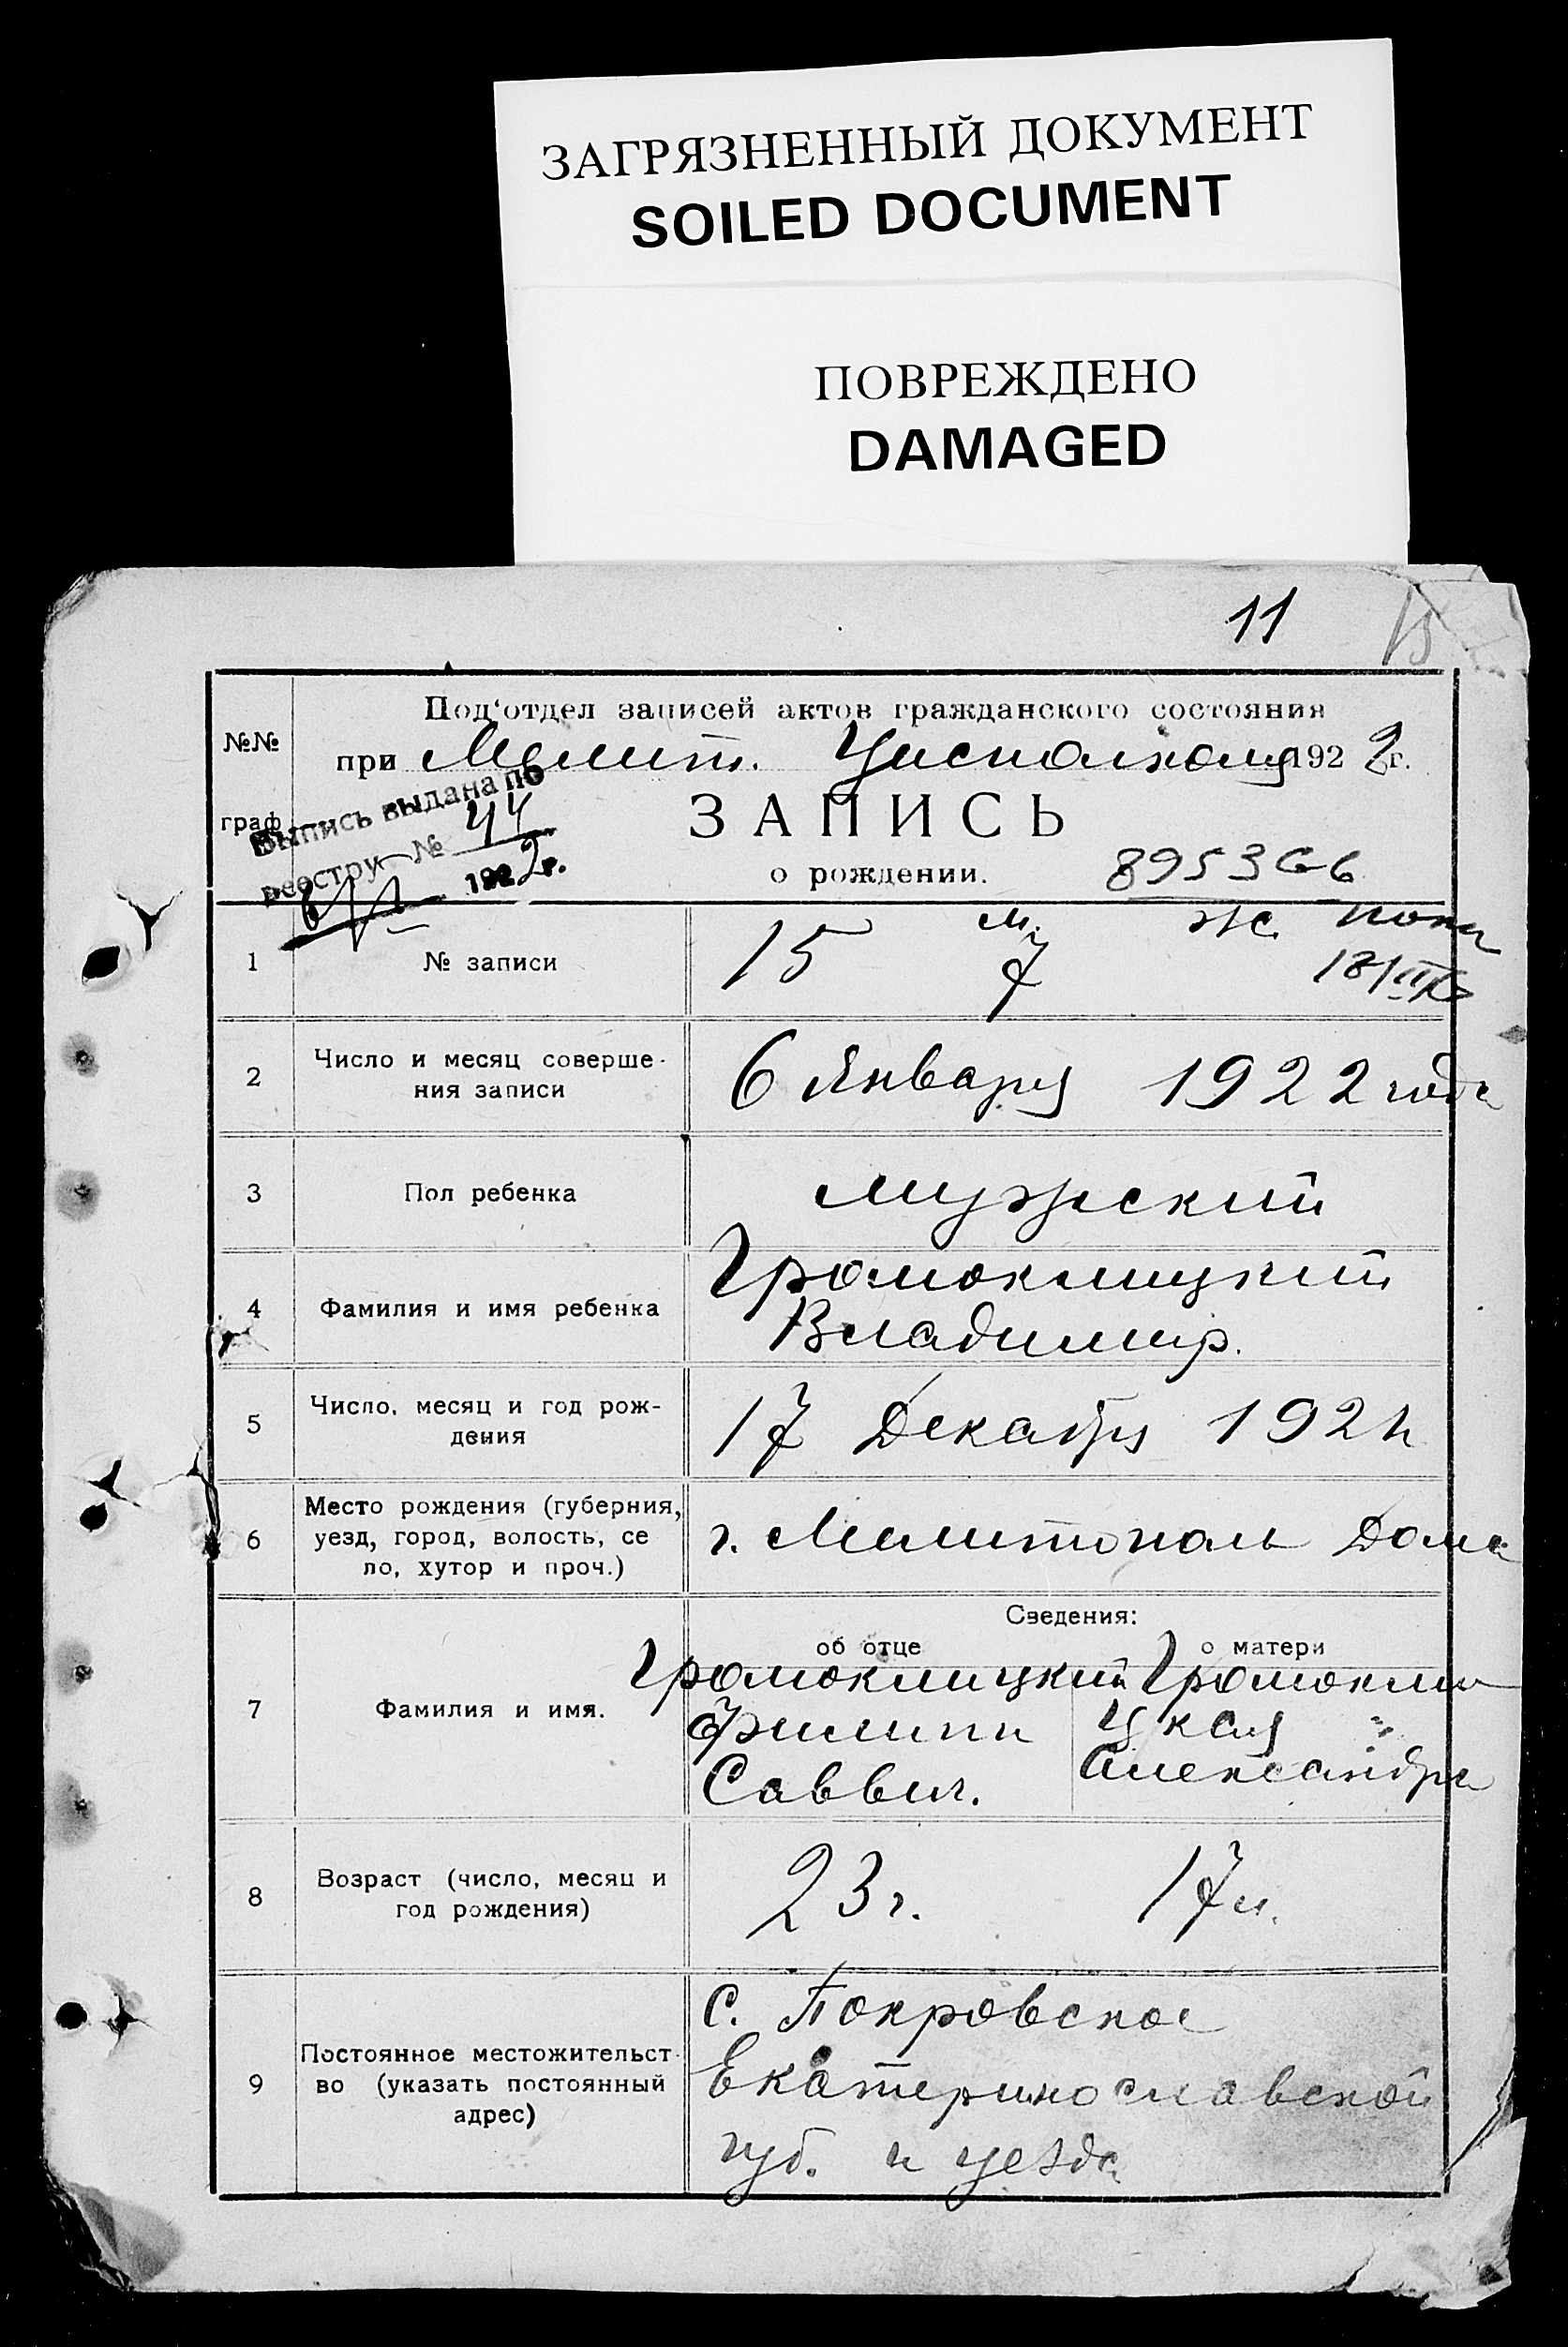 ЗАГРЯЗНЕННЫЙ ДОКУМЕНТ
SOILED DOCUMENT
ПОВРЕЖДЕНО
DAMAGED
11
15
№№
граф
Под'отдел записей актов гражданского состояния
при Мелит. Уисполкома 1922 г.
Выпись выдана по
реестру № 44
1922 г.
ЗАПИСЬ
о рождении.
1
№ записи
15 м. 7 ж.
2
Число и месяц соверше-
ния записи
6 Января 1922 года
3
Пол ребенка
мужской
4
Фамилия и имя ребенка
Громоклицкий
Владимир.
5
Число, месяц и год рож-
дения
17 Декабря 1921
6
Место рождения (губерния,
уезд, город, волость, се
ло, хутор и проч.)
г. Мелитополь Дома
Сведения:
об отце
о матери
7
Фамилия и имя.
Громоклицкий
Филипп
Саввич.
Громокли
цкая
Александра
8
Возраст (число, месяц и
год рождения)
23 г.
17 л.
9
Постоянное местожительст
во (указать постоянный
адрес)
с. Покровское
Екатеринославской
губ. и уезда